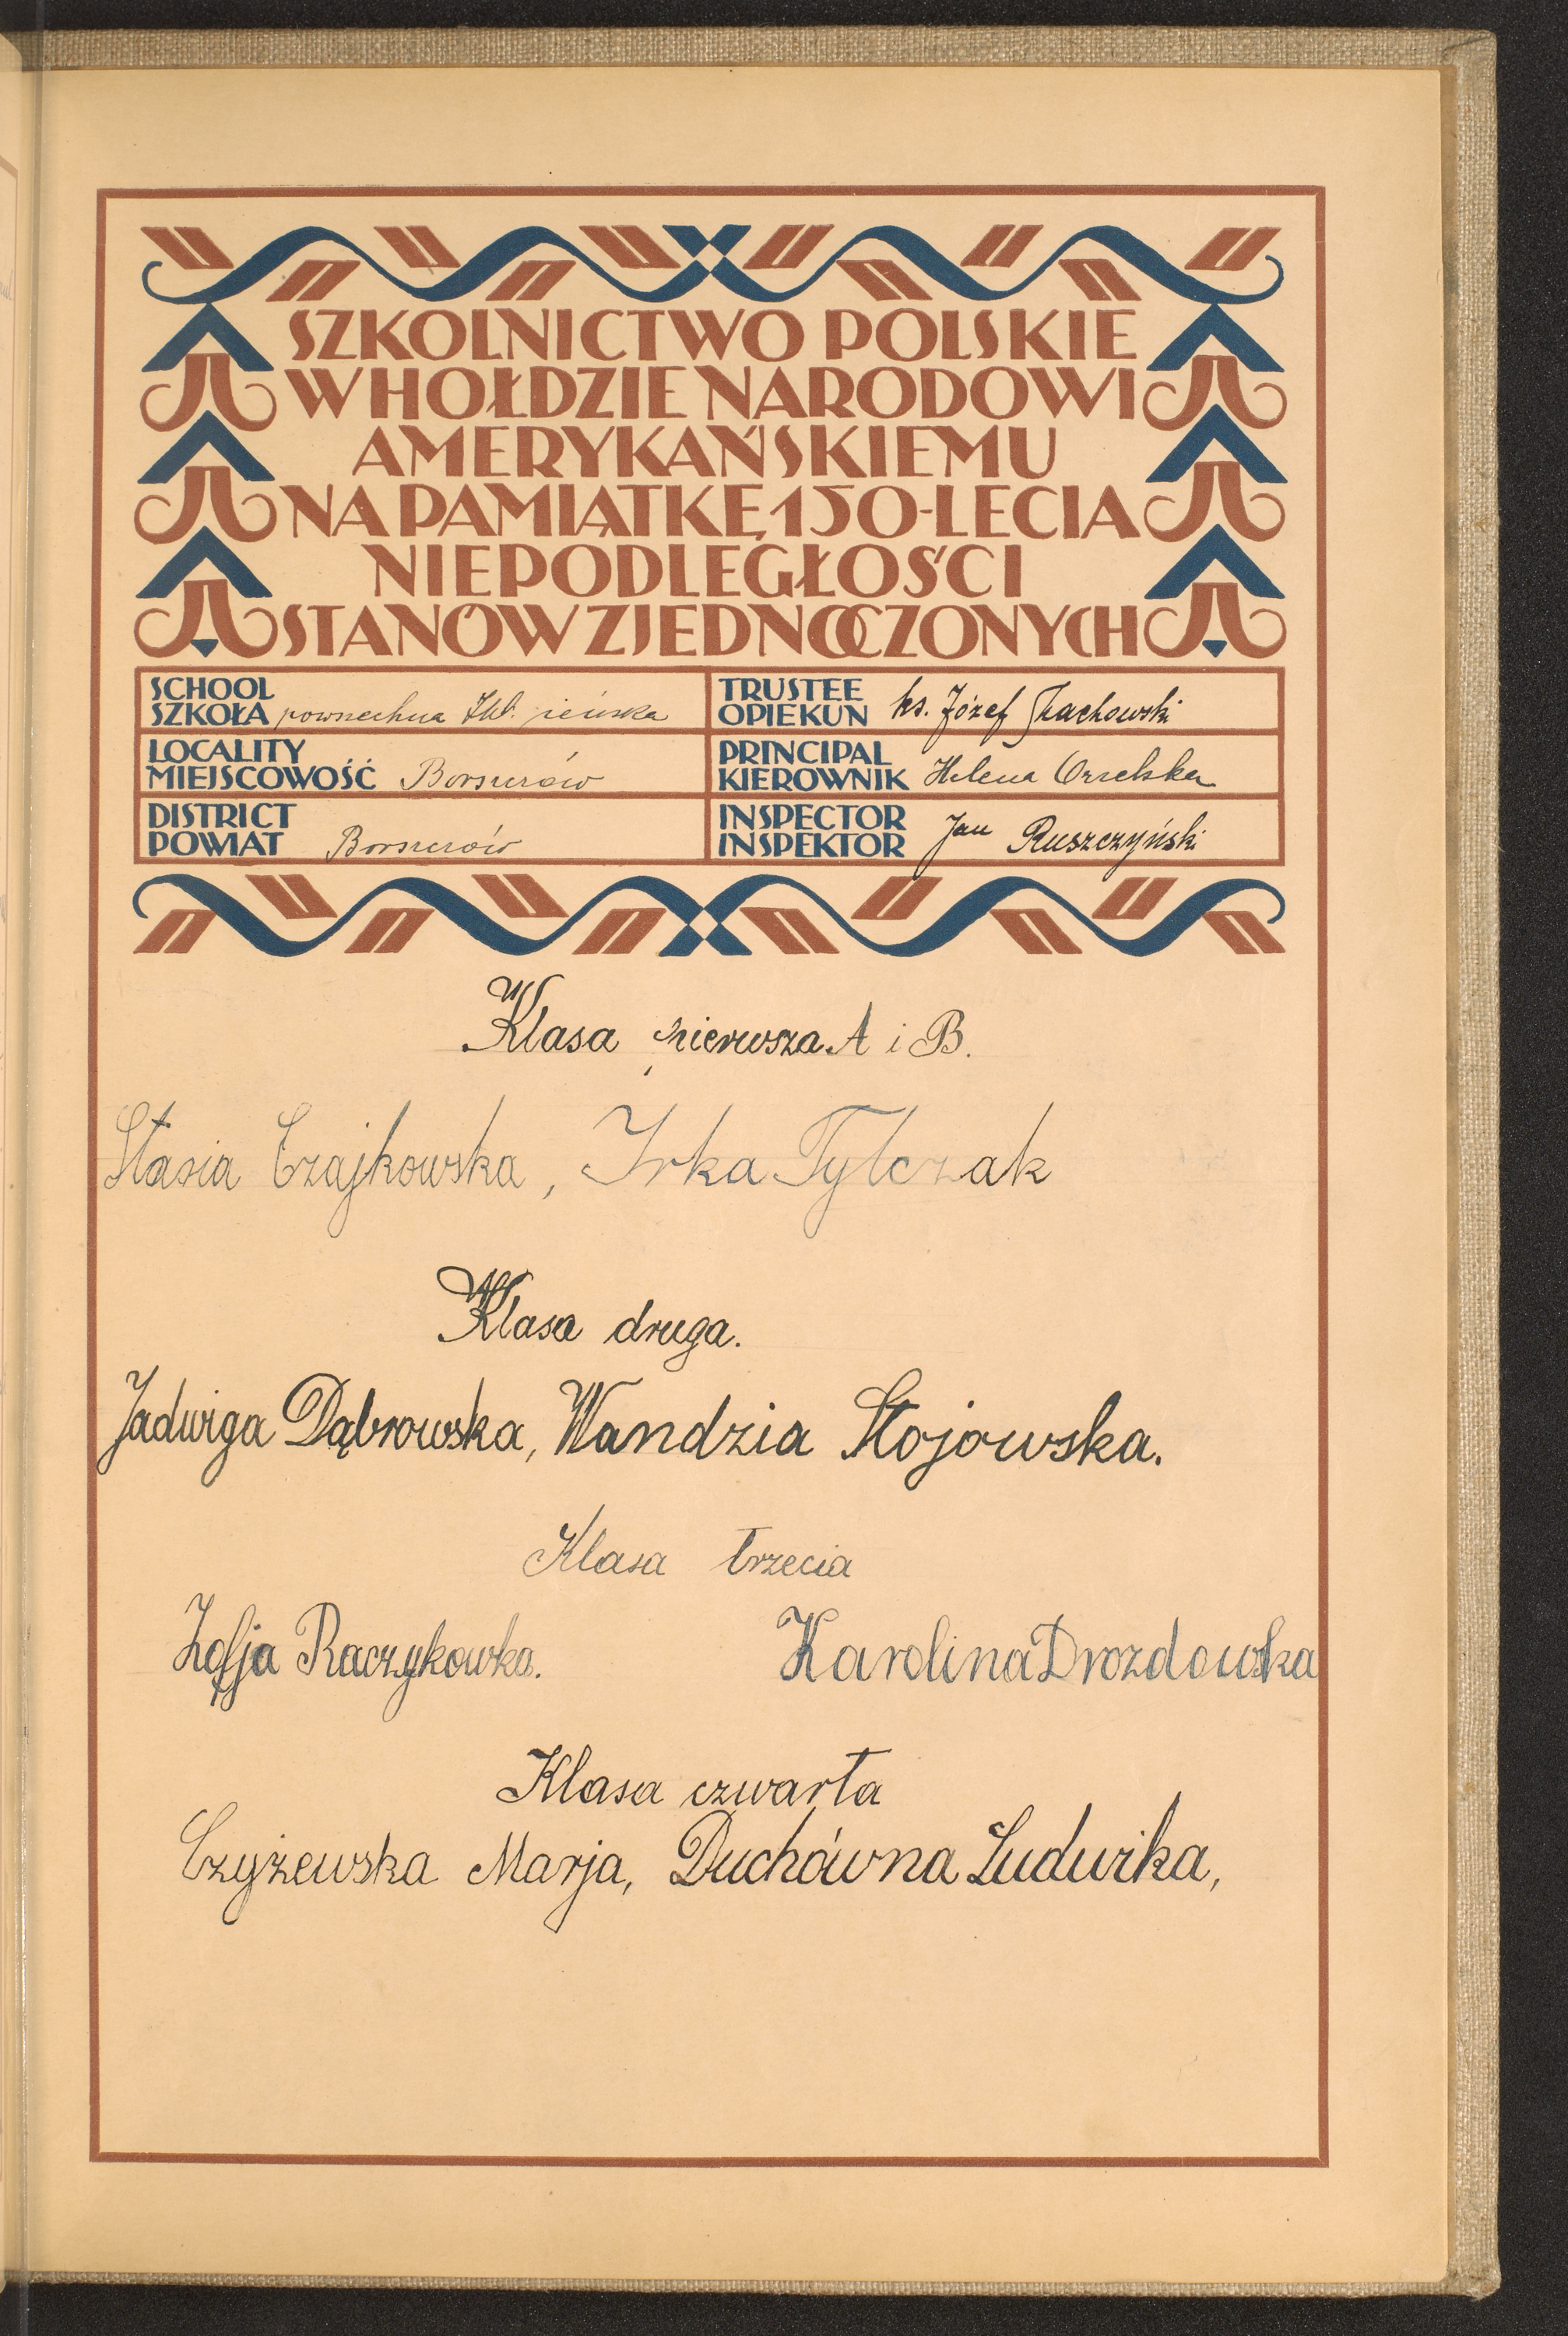 SZKOLNICTWO POLSKIE
W HOŁDZIE NARODOWI
AMERYKAŃSKIEMU
NA PAMIĄTKĘ 150-LECIA
NIEPODLEGŁOŚCI
STANÓW ZJEDNOCZONYCH
SCHOOL
SZKOŁA powszechna żeńska
LOCALITY
MIEJSCOWOŚĆ Borszczów
DISTRICT
POWIAT Borszczów
TRUSTEE
OPIEKUN ks. Józef
PRINCIPAL
KIEROWNIK Helena Orzelska
INSPECTOR
INSPEKTOR Jan Ruszczyński
Klasa pierwsza A i B.
Stasia Czajkowska, Irka Tylczak
Klasa druga.
Jadwiga Dąbrowska, Wandzia Stojowska.
Klasa trzecia
Zofja Raczykowka. Karolina Drozdowska
Klasa czwarta
Czyżewska Marja, Duchówna Ludwika,